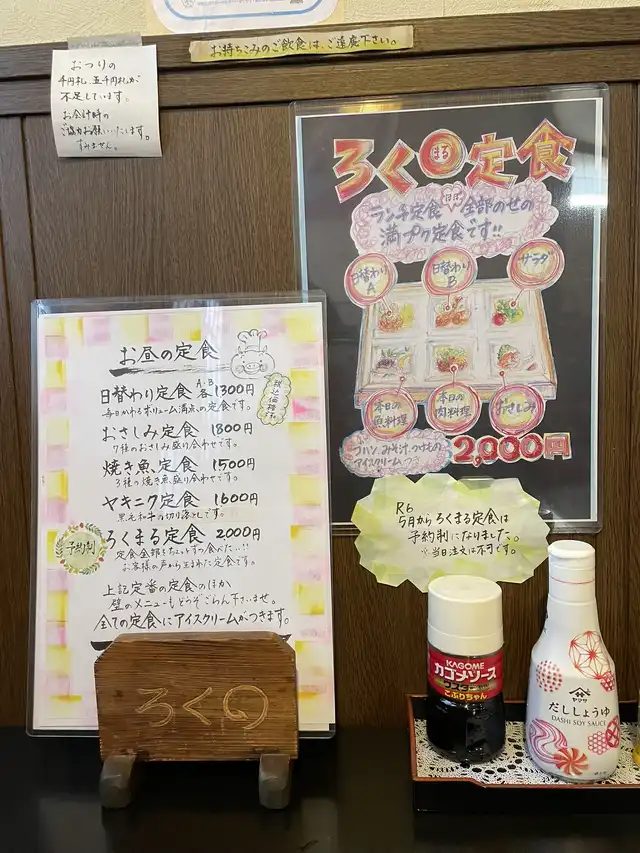 お持ちこみのご飲食は、ご遠慮下さい。
おつりの
千円札、五千円札が
不足しています。
お会計時の
ご協力お願いいたします。
すみません。
ろく
まる
定食
ランチ定食ほぼ全部のせの
満プク定食です!!
日替わり
A
日替わり
B
サラダ
本日の
魚料理
本日の
肉料理
おさしみ
ゴハン、みそ汁、つけもの
アイスクリームつき
2,000円
R6
5月からろくまる定食は
予約制になりました。
※当日注文は不可です。
お昼の定食
日替わり定食 A・B各1300円
毎日かわるボリューム満点の定食です。
税込価格です。
おさしみ定食 1800円
7種のおさしみ盛り合わせです。
焼き魚定食 1500円
3種の焼き魚盛り合わせです。
ヤキニク定食 1600円
黒毛和牛の切り落としです。
予約制
ろくまる定食 2000円
定食全部をちょっとずつ食べたい…!!
お客様の声から生まれた定食です。
上記定番の定食のほか
壁のメニューもどうぞごらん下さいませ。
全ての定食にアイスクリームがつきます。
ろく
KAGOME
カゴメソース
こぶりちゃん
ヤマサ
だししょうゆ
DASHI SOY SAUCE